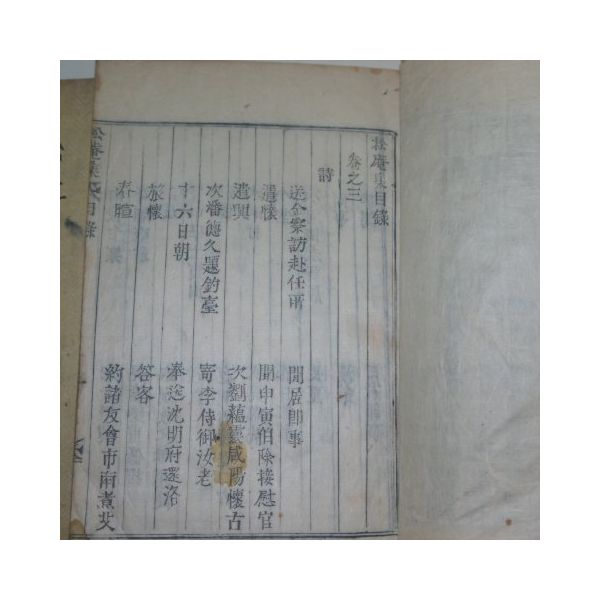 松庵集目錄
卷之三
詩
送金察訪赴任所
閒居卽事
遣懷
聞申寅伯除接慰官
遣興
次劉蘊靈咸陽懷古
次潘德久題釣臺
寄李侍御汝老
十六日朝
奉送沈明府還洛
旅懷
答客
春暄
約諸友會市南煮艾
松庵集 目錄